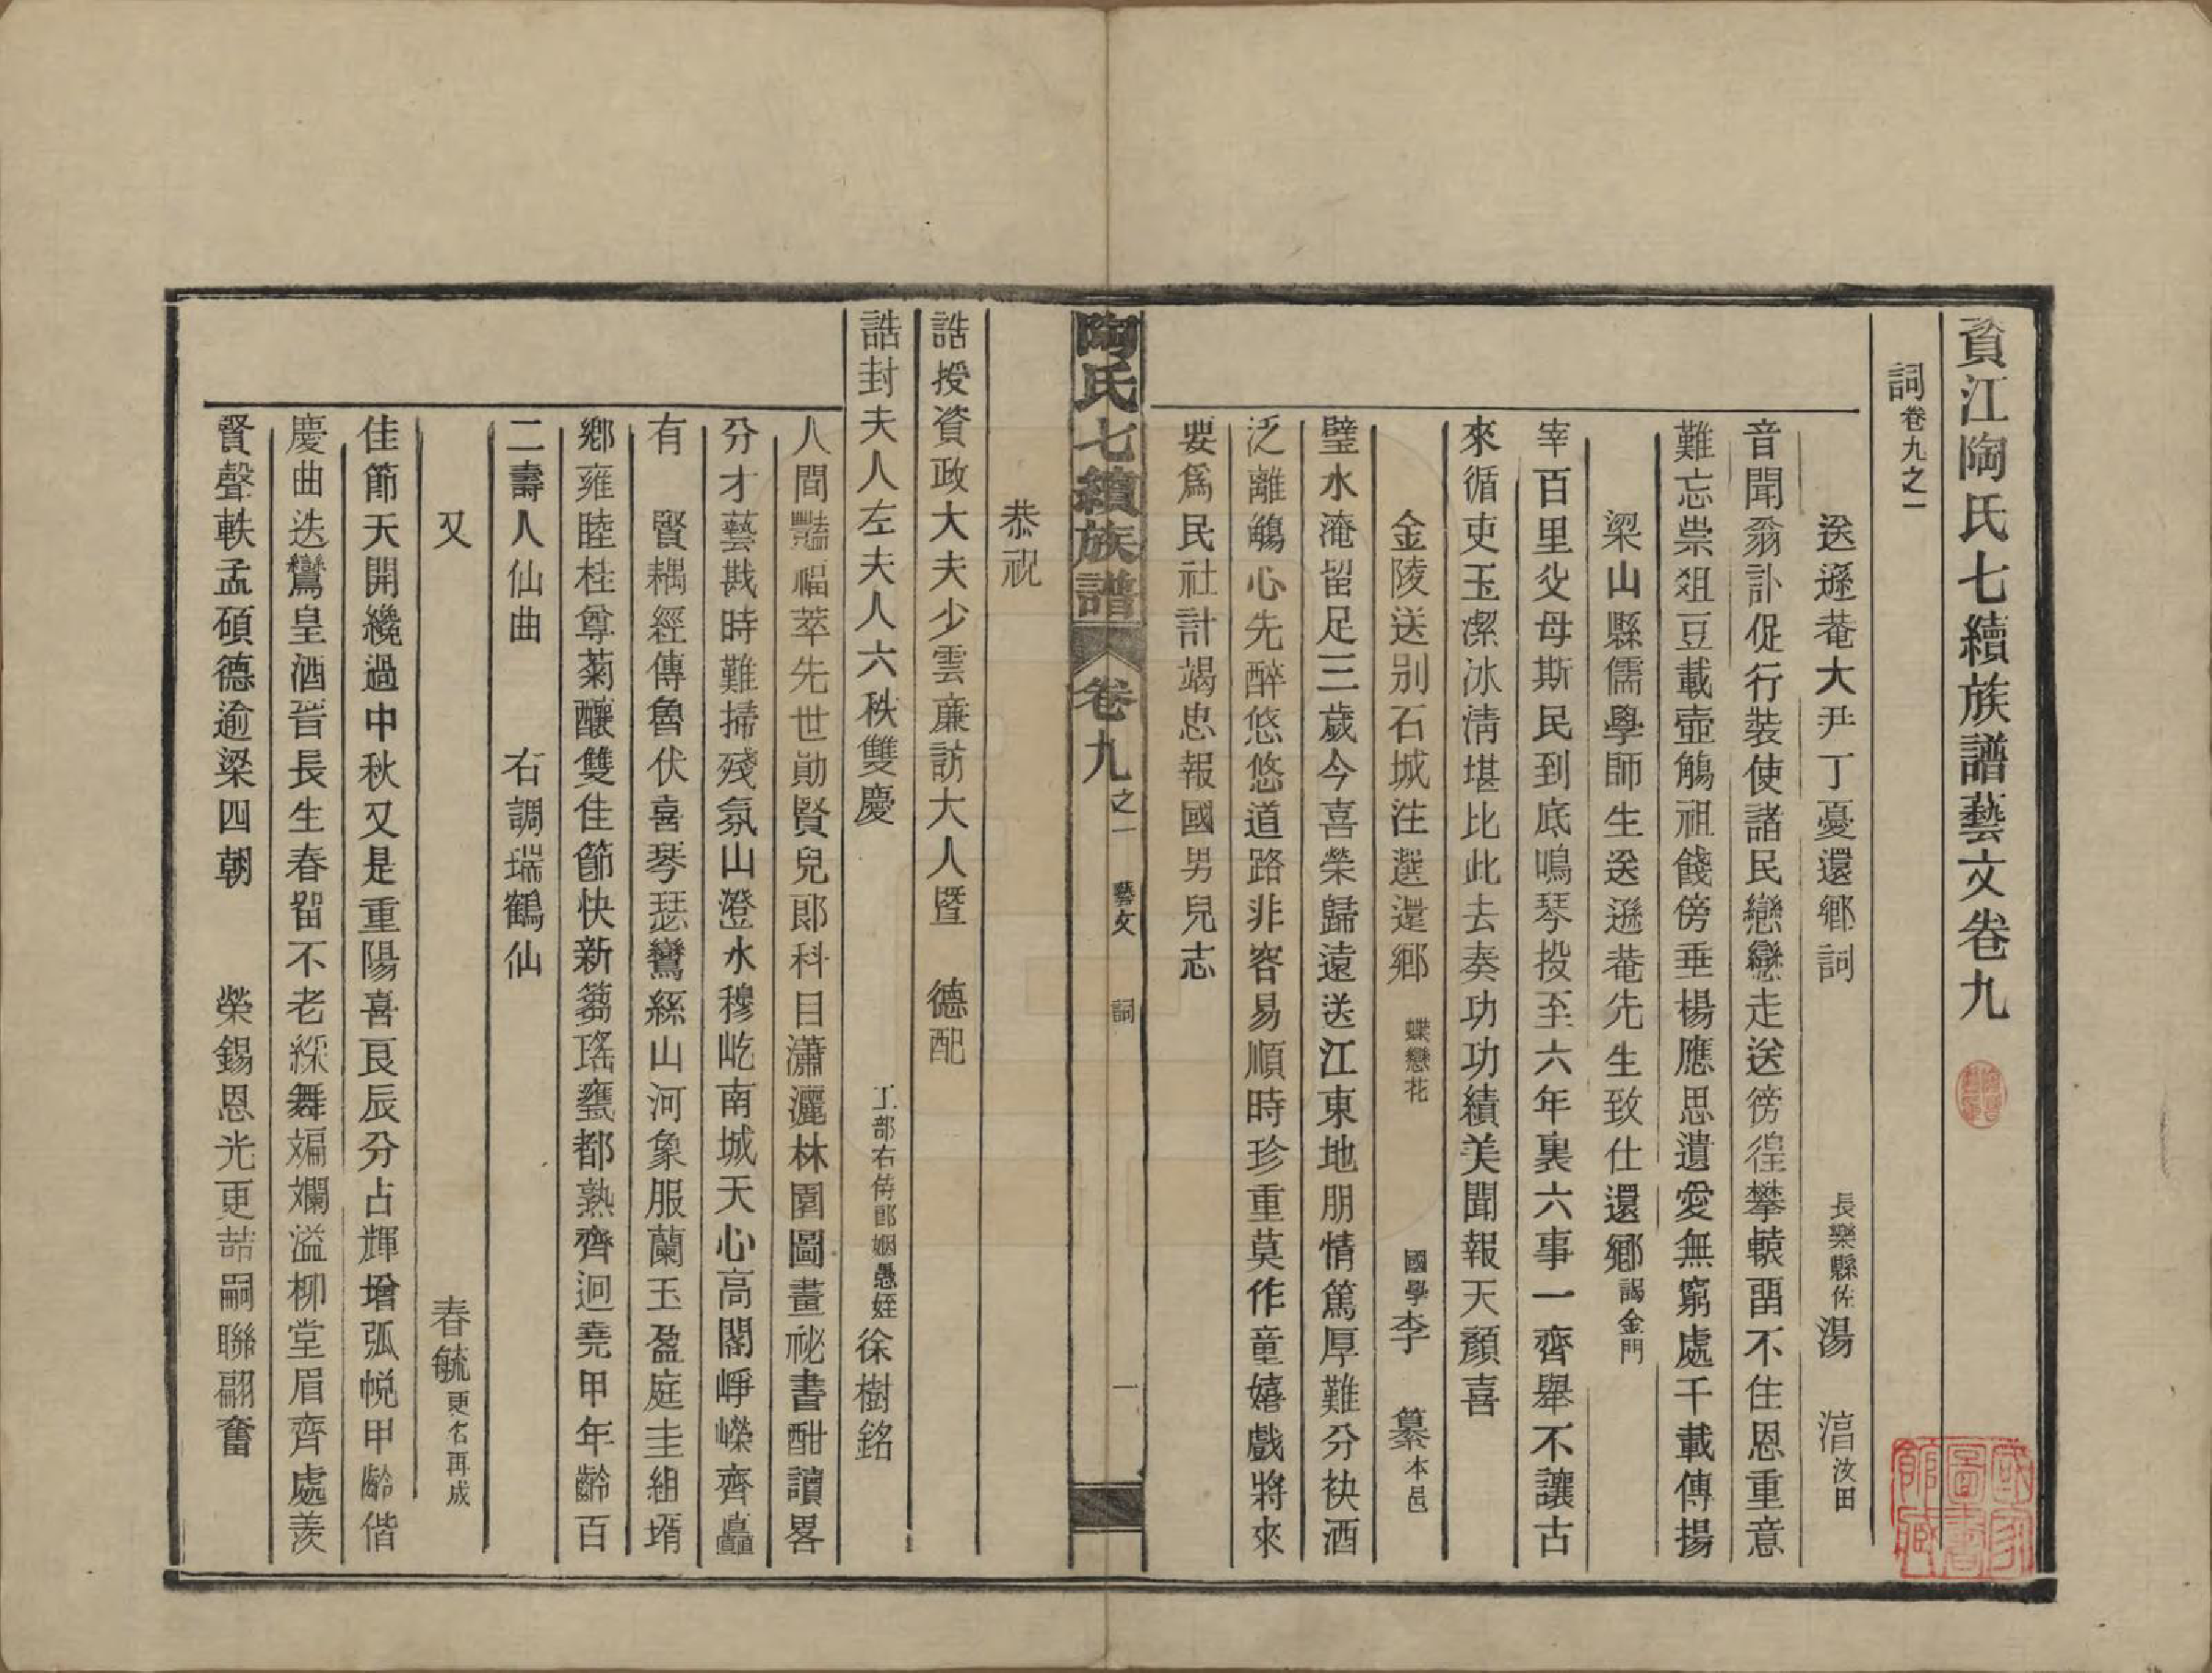 資江陶氏七續族譜藝文卷九
詞卷九之一
送遜菴大尹丁憂還鄉詞 長樂縣佐湯 湆汝田
音聞翁訃促行裝使諸民戀戀走送徬徨攀轅畱不住恩重意
難忘祟俎豆載壺觴祖餞傍垂楊應思遺愛無窮處千載傳揚
梁山縣儒學師生送遜菴先生致仕還鄉謁金門
宰百里父母斯民到底鳴琴投至六年裏六事一齊舉不讓古
來循吏玉潔冰淸堪比此去奏功功績美聞報天顏喜
金陵送別石城注選還鄉 蝶戀花 國學李 纂本邑
璧水淹畱足三歲今喜榮歸遠送江東地朋情篤厚難分袂酒
泛離觴心先醉悠悠道路非容易順時珍重莫作童嬉戲將來
要爲民社計竭忠報國男兒志
陶氏七續族譜 卷九之一 藝文 詞 一
恭祝
誥授資政大夫少雲廉訪大人暨 德配
誥封夫人左夫人六秩雙慶 工部右侍郎姻愚姪徐樹銘
人間豔福萃先世勛賢兒郎科目瀟灑林園圖畫祕書酣讀畧
分才藝戡時難掃殘氛山澄水穆屹南城天心高閣崢嶸齊矗
有 賢耦經傳魯伏喜琴瑟鸞絲山河象服蘭玉盈庭圭組壻
鄉雍睦桂尊菊釀雙佳節快新蒭瑤甕都熟齊迴堯甲年齡百
二壽人仙曲 右調瑞鶴仙
又 春毓更名再成
佳節天開纔過中秋又是重陽喜良辰分占輝增弧帨甲齡偕
慶曲迭鸞皇酒晉長生春畱不老綵舞斒斕溢柳堂眉齊處羨
賢聲軼孟碩德逾梁四朝 榮錫恩光更喆嗣聯翩奮